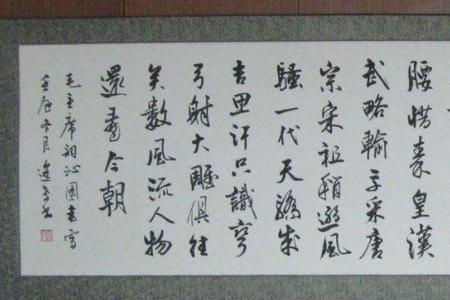 腰惜秦皇漢
武略輸文采唐
宗宋祖稍遜風
騷一代天驕成
吉思汗只識彎
弓射大雕俱往
矣數風流人物
還看今朝
毛主席詞沁園春雪
壬辰冬月